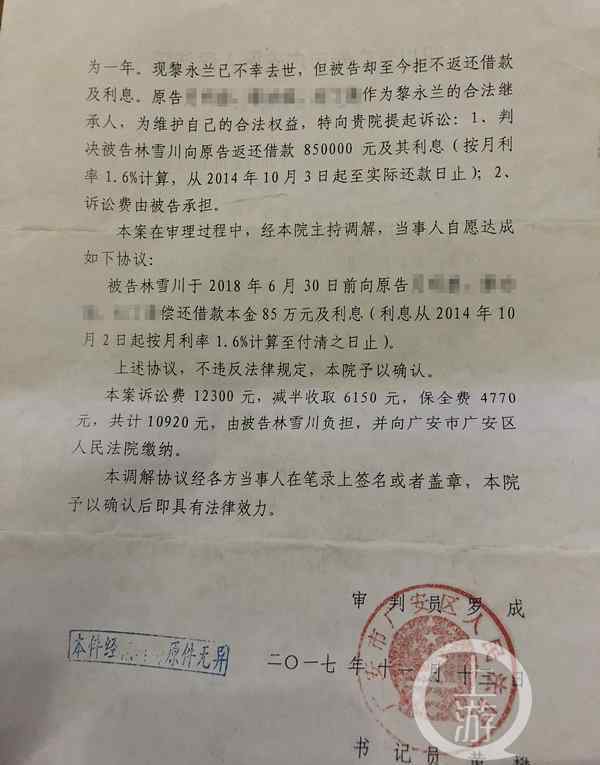 为一年。现黎永兰已不幸去世，但被告却至今拒不返还借款
及利息。原告 作为黎永兰的合法继
承人，为维护自己的合法权益，特向贵院提起诉讼：1、判
决被告林雪川向原告返还借款 850000 元及其利息（按月利
率 1.6%计算，从 2014 年 10 月 3 日起至实际还款日止）；2、
诉讼费由被告承担。
本案在审理过程中，经本院主持调解，当事人自愿达成
如下协议：
被告林雪川于 2018 年 6 月 30 日前向原告
偿还借款本金 85 万元及利息（利息从 2014 年 10
月 2 日起按月利率 1.6%计算至付清之日止）。
上述协议，不违反法律规定，本院予以确认。
本案诉讼费 12300 元，减半收取 6150 元，保全费 4770
元，共计 10920 元，由被告林雪川负担，并向广安市广安区
人民法院缴纳。
本调解协议经各方当事人在笔录上签名或者盖章，本院
予以确认后即具有法律效力。
审 判 员 罗 成
本件经 原件无异
二〇一七年十一月十 日
广安市广安区人民法
上游
书 记 员 黄